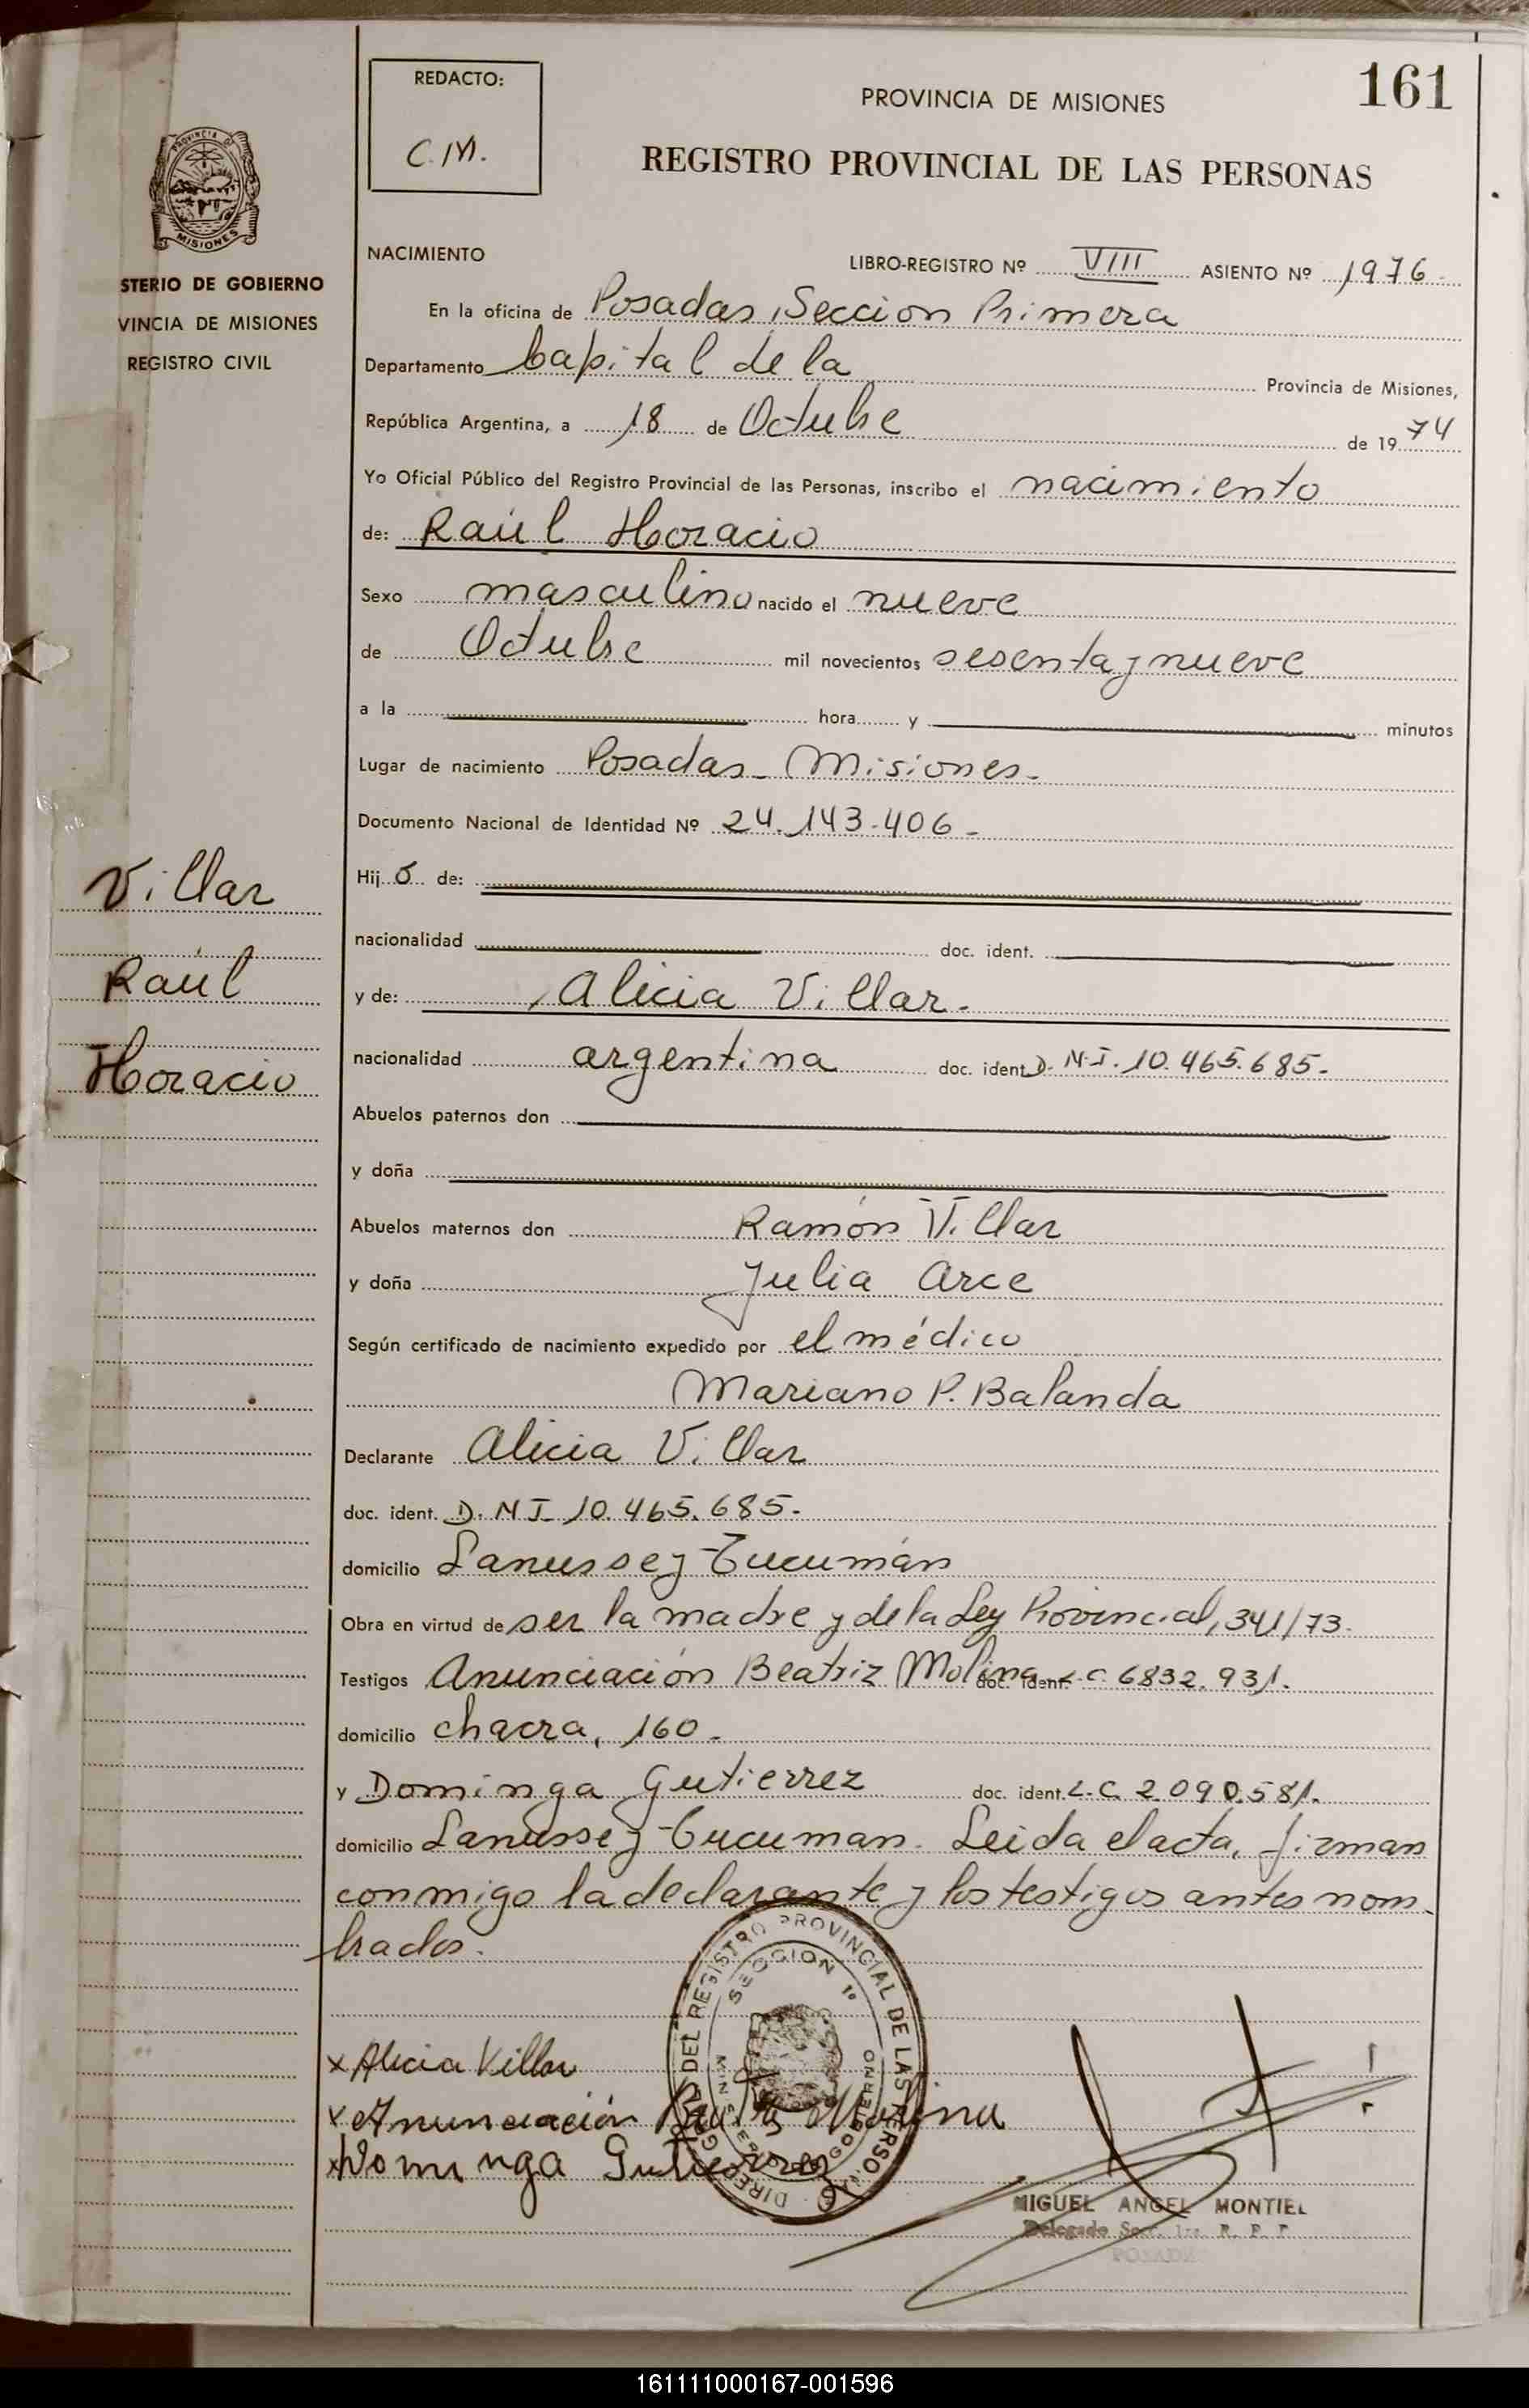 161
REDACTO:
C.M.
PROVINCIA DE MISIONES
REGISTRO PROVINCIAL DE LAS PERSONAS
PROVINCIA D
MISIONES
STERIO DE GOBIERNO
VINCIA DE MISIONES
REGISTRO CIVIL
NACIMIENTO
LIBRO-REGISTRO Nº VIII ASIENTO Nº 1976
En la oficina de Posadas, Sección Primera
Departamento Capital de la Provincia de Misiones,
República Argentina, a 18 de Octubre de 1974
Yo Oficial Público del Registro Provincial de las Personas, inscribo el nacimiento
de: Raúl Horacio
Sexo masculino nacido el nueve
de Octubre mil novecientos sesenta y nueve
a la hora y minutos
Lugar de nacimiento Posadas - Misiones.
Documento Nacional de Identidad Nº 24.143.406 -
Hijo de:
nacionalidad doc. ident.
y de: Alicia Villar.
nacionalidad argentina doc. ident. D.N.I. 10.465.685.
Abuelos paternos don
y doña
Abuelos maternos don Ramón Villar
y doña Julia Arce
Según certificado de nacimiento expedido por el médico
Mariano P. Balanda
Declarante Alicia Villar
doc. ident. D.N.I. 10.465.685.
domicilio Lanusse y Tucumán
Obra en virtud de ser la madre y de la Ley Provincial, 341/73.
Testigos Anunciación Beatriz Molina doc. ident. L.C. 6832.931.
domicilio chacra, 160.
y Dominga Gutierrez doc. ident. L.C. 2.090.581.
domicilio Lanusse y Tucuman. Leida el acta, firman
conmigo la declarante y los testigos antes nom-
brados.
Villar
Raúl
Horacio
x Alicia Villar
x Anunciación Molina
x Dominga Gutierrez
DEL REGISTRO PROVINCIAL DE LAS PERSO
SECCION 1º
MIGUEL ANGEL MONTIEL
Delegado Sec. 1ra. R. P. P.
POSADAS
161111000167-001596